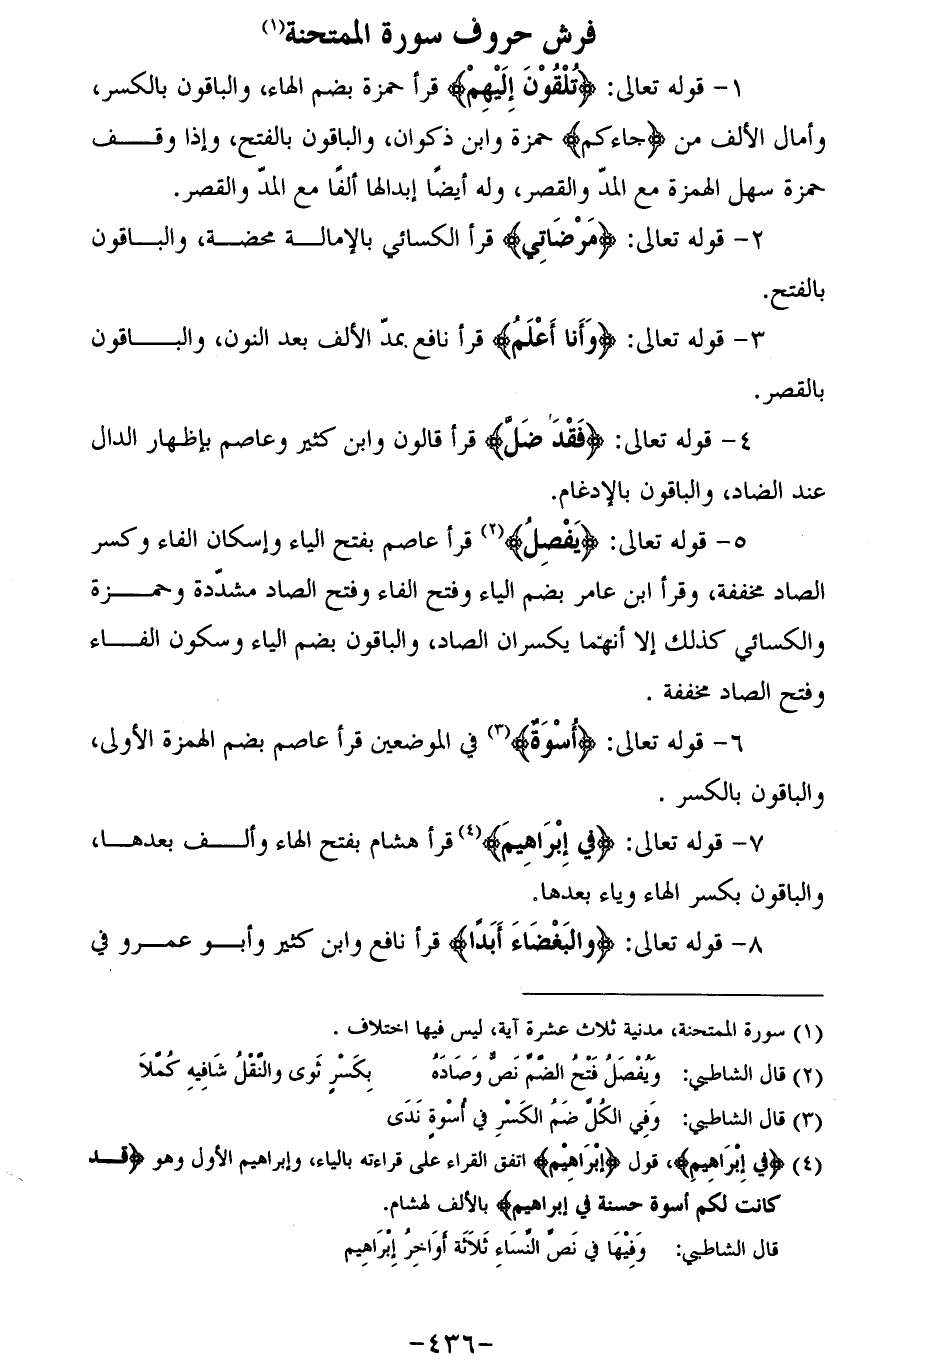 فرش حروف سورة الممتحنة(١)
١- قوله تعالى: ﴿تُلْقُوْنَ إِلَيْهِمْ﴾ قرأ حمزة بضم الهاء، والباقون بالكسر،
وأمال الألف من ﴿جاءكم﴾ حمزة وابن ذكوان، والباقون بالفتح، وإذا وقـــف
حمزة سهل الهمزة مع المدّ والقصر، وله أيضًا إبدالها ألفًا مع المدّ والقصر.
٢- قوله تعالى: ﴿مَرْضَاتِي﴾ قرأ الكسائي بالإمالــة محضــة، والبــاقون
بالفتح.
٣- قوله تعالى: ﴿وَأَنا أَعْلَمُ﴾ قرأ نافع بمدّ الألف بعد النون، والبــــاقون
بالقصر.
٤- قوله تعالى: ﴿فَقْدَ ضَلَّ﴾ قرأ قالون وابن كثير وعاصم بإظهار الدال
عند الضاد، والباقون بالإدغام.
٥- قوله تعالى: ﴿يَفْصِلُ﴾(٢) قرأ عاصم بفتح الياء وإسكان الفاء وكسر
الصاد مخففة، وقرأ ابن عامر بضم الياء وفتح الفاء وفتح الصاد مشدّدة وحمــــزة
والكسائي كذلك إلا أنهما يكسران الصاد، والباقون بضم الياء وسكون الفـــاء
وفتح الصاد مخففة .
٦- قوله تعالى: ﴿أُسْوَةٌ﴾(٣) في الموضعين قرأ عاصم بضم الهمزة الأولى،
والباقون بالكسر .
٧- قوله تعالى: ﴿في إِبْرَاهِيمَ﴾(٤) قرأ هشام بفتح الهاء وألـــف بعدهــا،
والباقون بكسر الهاء وياء بعدها.
٨- قوله تعالى: ﴿والبَغْضَاءَ أَبَدًا﴾ قرأ نافع وابن كثير وأبــو عمــرو في
(١) سورة الممتحنة، مدنية ثلاث عشرة آية، ليس فيها اختلاف .
(٢) قال الشاطبي: وَيُفْصَلُ فَتْحُ الضَّمِّ نَصٌّ وَصَادَهُ بِكَسْرٍ ثَوى والثِّقْلُ شَافِيهِ كُمَّلاَ
(٣) قال الشاطبي: وَفِي الكُلِّ ضَمُ الكَسْرِ فِي أُسْوةٍ نَدَى
(٤) ﴿في إِبْرَاهِيمِ﴾، قول ﴿إِبْرَاهِيْمَ﴾ اتفق القراء على قراءته بالياء، وإبراهيم الأول وهو ﴿قــد
كانت لكم أسوة حسنة في إبراهيم﴾ بالألف لهشام.
قال الشاطبي: وَفِيْهَا فِي نَصِّ النِّسَاءِ ثَلاَثَة أَوَاخِرُ إِبْرَاهِيم
-٤٣٦-